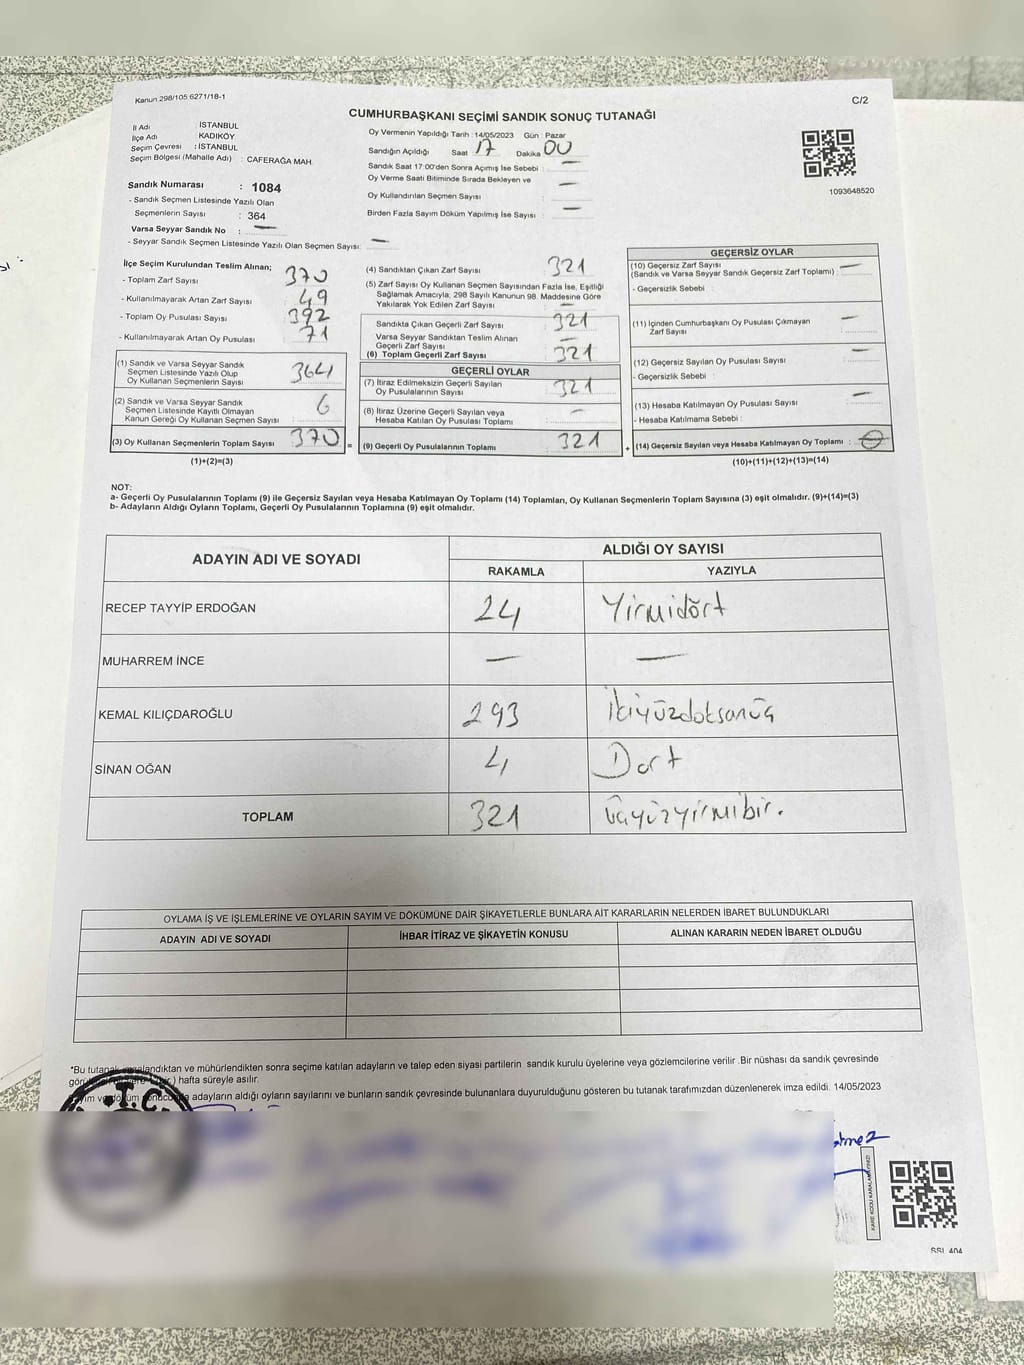 Kanun 298/105 6271/18-1
C/2
CUMHURBAŞKANI SEÇİMİ SANDIK SONUÇ TUTANAĞI
İl Adı İSTANBUL
İlçe Adı KADIKÖY
Seçim Çevresi : İSTANBUL
Seçim Bölgesi (Mahalle Adı) : CAFERAĞA MAH.
Sandık Numarası : 1084
- Sandık Seçmen Listesinde Yazılı Olan
Seçmenlerin Sayısı : 364
Varsa Seyyar Sandık No : —
- Seyyar Sandık Seçmen Listesinde Yazılı Olan Seçmen Sayısı: —
Oy Vermenin Yapıldığı Tarih : 14/05/2023 Gün : Pazar
Sandığın Açıldığı Saat 17 Dakika 00
Sandık Saat 17:00'den Sonra Açımış İse Sebebi : —
Oy Verme Saati Bitiminde Sırada Bekleyen ve
Oy Kullandırılan Seçmen Sayısı : —
Birden Fazla Sayım Döküm Yapılmış İse Sayısı : —
1093648520
İlçe Seçim Kurulundan Teslim Alınan;
- Toplam Zarf Sayısı : 370
- Kullanılmayarak Artan Zarf Sayısı : 49
- Toplam Oy Pusulası Sayısı : 392
- Kullanılmayarak Artan Oy Pusulası : 71
(1) Sandık ve Varsa Seyyar Sandık
Seçmen Listesinde Yazılı Olup
Oy Kullanan Seçmenlerin Sayısı : 364
(2) Sandık ve Varsa Seyyar Sandık
Seçmen Listesinde Kayıtlı Olmayan
Kanun Gereği Oy Kullanan Seçmen Sayısı : 6
(3) Oy Kullanan Seçmenlerin Toplam Sayısı : 370 =
(1)+(2)=(3)
(4) Sandıktan Çıkan Zarf Sayısı : 321
(5) Zarf Sayısı Oy Kullanan Seçmen Sayısından Fazla İse, Eşitliği
Sağlamak Amacıyla, 298 Sayılı Kanunun 98. Maddesine Göre
Yakılarak Yok Edilen Zarf Sayısı : —
Sandıkta Çıkan Geçerli Zarf Sayısı : 321
Varsa Seyyar Sandıktan Teslim Alınan
Geçerli Zarf Sayısı : —
(6) Toplam Geçerli Zarf Sayısı : 321
GEÇERLİ OYLAR
(7) İtiraz Edilmeksizin Geçerli Sayılan
Oy Pusulalarının Sayısı : 321
(8) İtiraz Üzerine Geçerli Sayılan veya
Hesaba Katılan Oy Pusulası Toplamı : —
(9) Geçerli Oy Pusulalarının Toplamı : 321 +
GEÇERSİZ OYLAR
(10) Geçersiz Zarf Sayısı : —
(Sandık ve Varsa Seyyar Sandık Geçersiz Zarf Toplamı)
- Geçersizlik Sebebi :
(11) İçinden Cumhurbaşkanı Oy Pusulası Çıkmayan
Zarf Sayısı : —
(12) Geçersiz Sayılan Oy Pusulası Sayısı : —
- Geçersizlik Sebebi :
(13) Hesaba Katılmayan Oy Pusulası Sayısı : —
- Hesaba Katılmama Sebebi :
(14) Geçersiz Sayılan veya Hesaba Katılmayan Oy Toplamı :
(10)+(11)+(12)+(13)=(14)
NOT:
a- Geçerli Oy Pusulalarının Toplamı (9) ile Geçersiz Sayılan veya Hesaba Katılmayan Oy Toplamı (14) Toplamları, Oy Kullanan Seçmenlerin Toplam Sayısına (3) eşit olmalıdır. (9)+(14)=(3)
b- Adayların Aldığı Oyların Toplamı, Geçerli Oy Pusulalarının Toplamına (9) eşit olmalıdır.
ADAYIN ADI VE SOYADI
ALDIĞI OY SAYISI
RAKAMLA YAZIYLA
RECEP TAYYİP ERDOĞAN 24 Yirmidört
MUHARREM İNCE — —
KEMAL KILIÇDAROĞLU 293 İkiyüzdoksanüç
SİNAN OĞAN 4 Dort
TOPLAM 321 üçyüzyirmibir.
OYLAMA İŞ VE İŞLEMLERİNE VE OYLARIN SAYIM VE DÖKÜMÜNE DAİR ŞİKAYETLERLE BUNLARA AİT KARARLARIN NELERDEN İBARET BULUNDUKLARI
ADAYIN ADI VE SOYADI İHBAR İTİRAZ VE ŞİKAYETİN KONUSU ALINAN KARARIN NEDEN İBARET OLDUĞU
*Bu tutanak imzalandıktan ve mühürlendikten sonra seçime katılan adayların ve talep eden siyasi partilerin sandık kurulu üyelerine ve gözlemcilerine verilir .Bir nüshası da sandık çevresinde
) hafta süreyle asılır.
adayların aldığı oyların sayılarını ve bunların sandık çevresinde bulunanlara duyurulduğunu gösteren bu tutanak tarafımızdan düzenlenerek imza edildi. 14/05/2023
T.C.